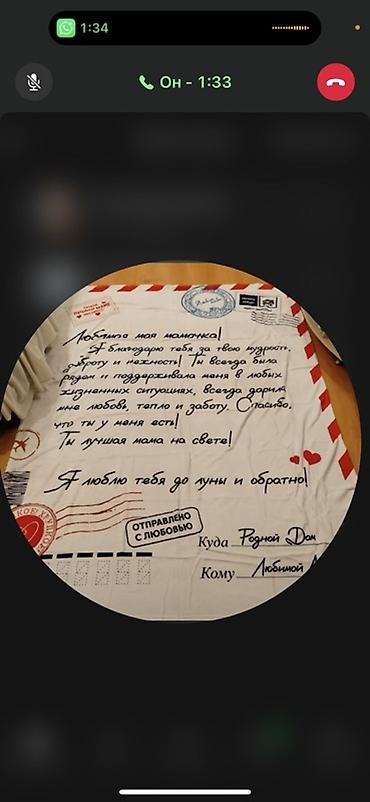 1:34
Он - 1:33
Любимая моя мамочка!
Я благодарю тебя за твою мудрость,
доброту и нежность! Ты всегда была
рядом и поддерживала меня в любых
жизненных ситуациях, всегда дарила
мне любовь, тепло и заботу. Спасибо,
что ты у меня есть!
Ты лучшая мама на свете!
Я люблю тебя до луны и обратно!
ОТПРАВЛЕНО
С ЛЮБОВЬЮ
Куда Родной Дом
Кому Любимой